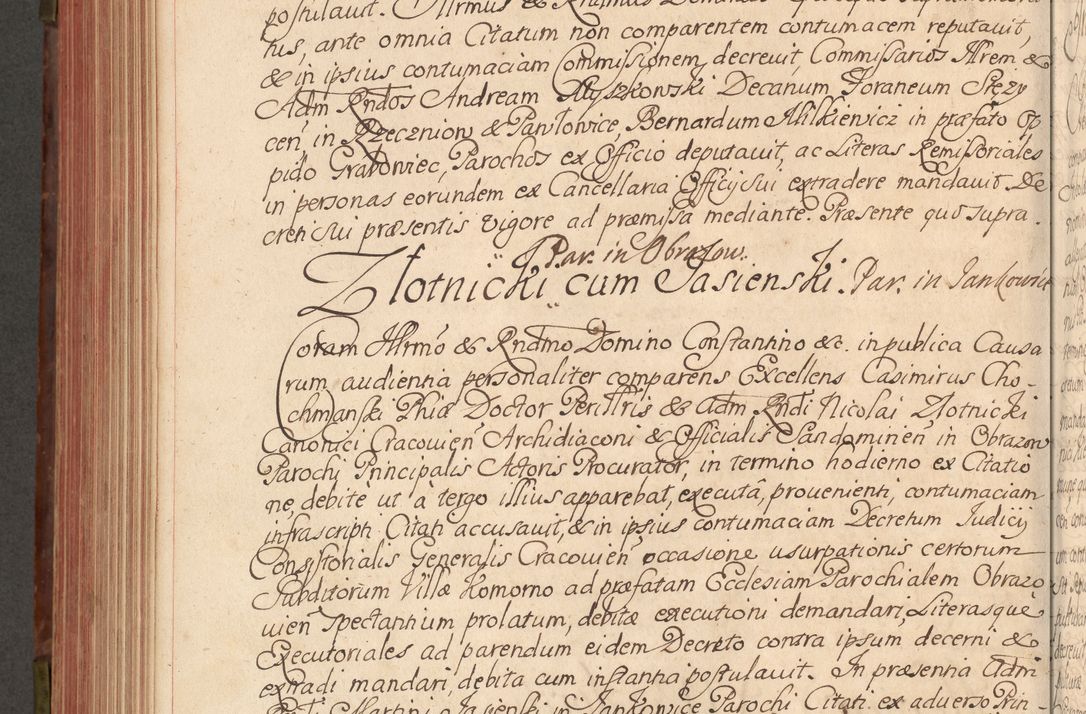 postulavit. Illrmus & Rndmus Dominus
tus, ante omnia Citatum non comparentem contumacem reputavit,
& in ipsius contumaciam Commissionem decrevit, Commissarios Illrem &
Adm Rndos Andream Kłyszkowski Decanum Foraneum Stęży
cen̄, in Rzeczniow & Pawłowice, Bernardum Milkiewicz in præfato Op
pido Grabowiec, Parochos ex Officio deputavit, ac Literas Remissoriales
in personas eorundem ex Cancellaria Officÿ sui extradere mandavit. De
creti sui præsentis vigore ad præmissa mediante. Præsente quo supra.
Par. in Obrazow.
Złotnicki cum Jasienski. Par. in Jankowice
Coram Illrmo & Rndmo Domino Constantino &c. in publica Causa
rum audientia personaliter comparens Excellens Casimirus Cho-
chmanski Phiæ Doctor Perillris & Adm Rndi Nicolai Złotnicki
Canonici Cracovien̄ Archidiaconi & Officialis Sandomirien̄ in Obrazow
Parochi Principalis Actoris Procurator, in termino hodierno ex Citatio
ne, debite ut à tergo illius apparebat, executâ, provenienti, contumaciam
infrascripti Citati accusavit, & in ipsius contumaciam Decretum Judicÿ
Consistorialis Generalis Cracovien̄ occasione usurpationis certorum
Subditorum Villæ Komorno ad præfatam Ecclesiam Parochialem Obrazo
vien̄ spectantium prolatum, debitæ executioni demandari, Literasquè
Executoriales ad parendum eidem Decreto contra ipsum decerni &
extradi mandari, debita cum instantia postulavit. In præsentia Adm
Rndi Martini Jasienski in Jankowice Parochi Citati ex adverso Prin-